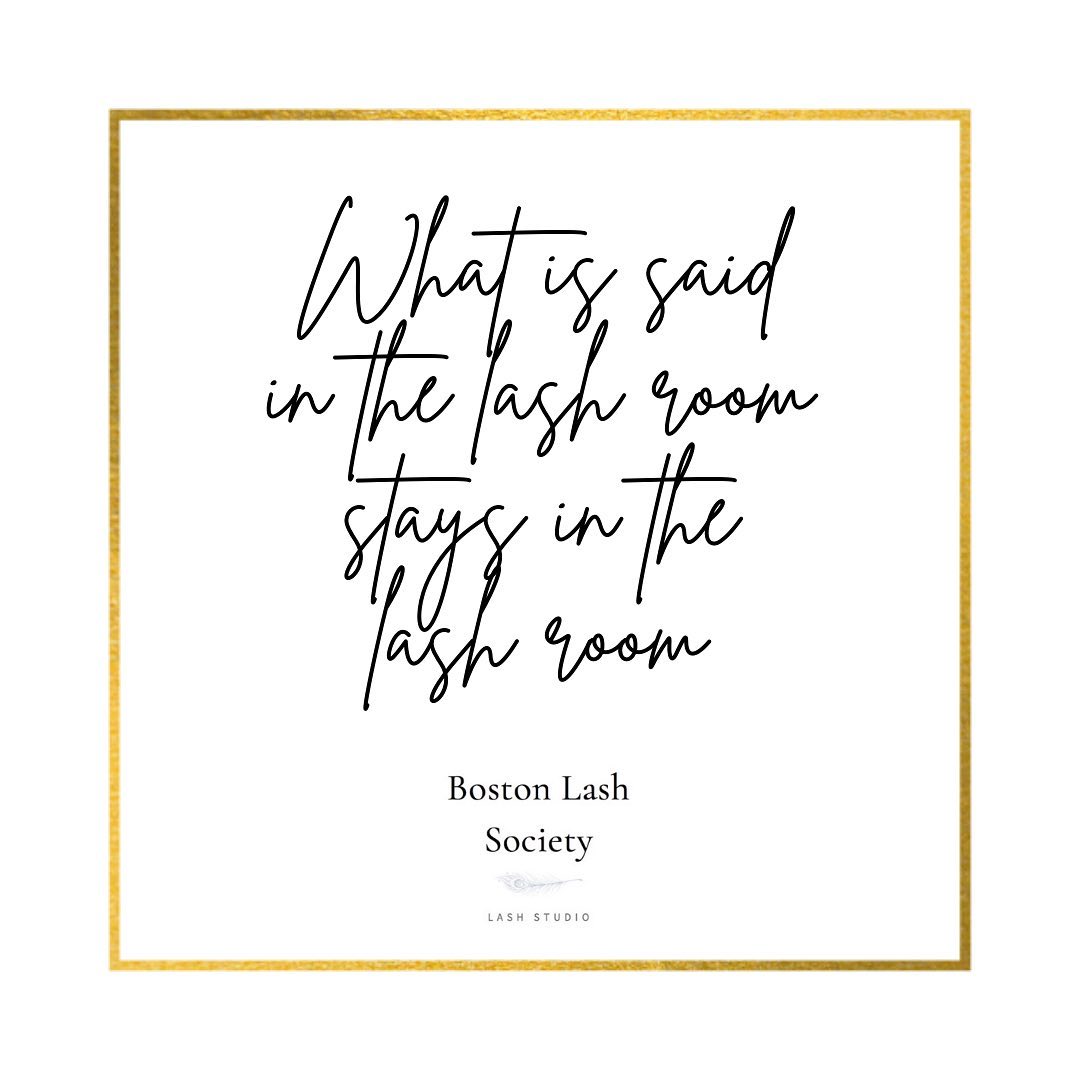 What is said
in the lash room
stays in the
lash room
Boston Lash
Society
LASH STUDIO